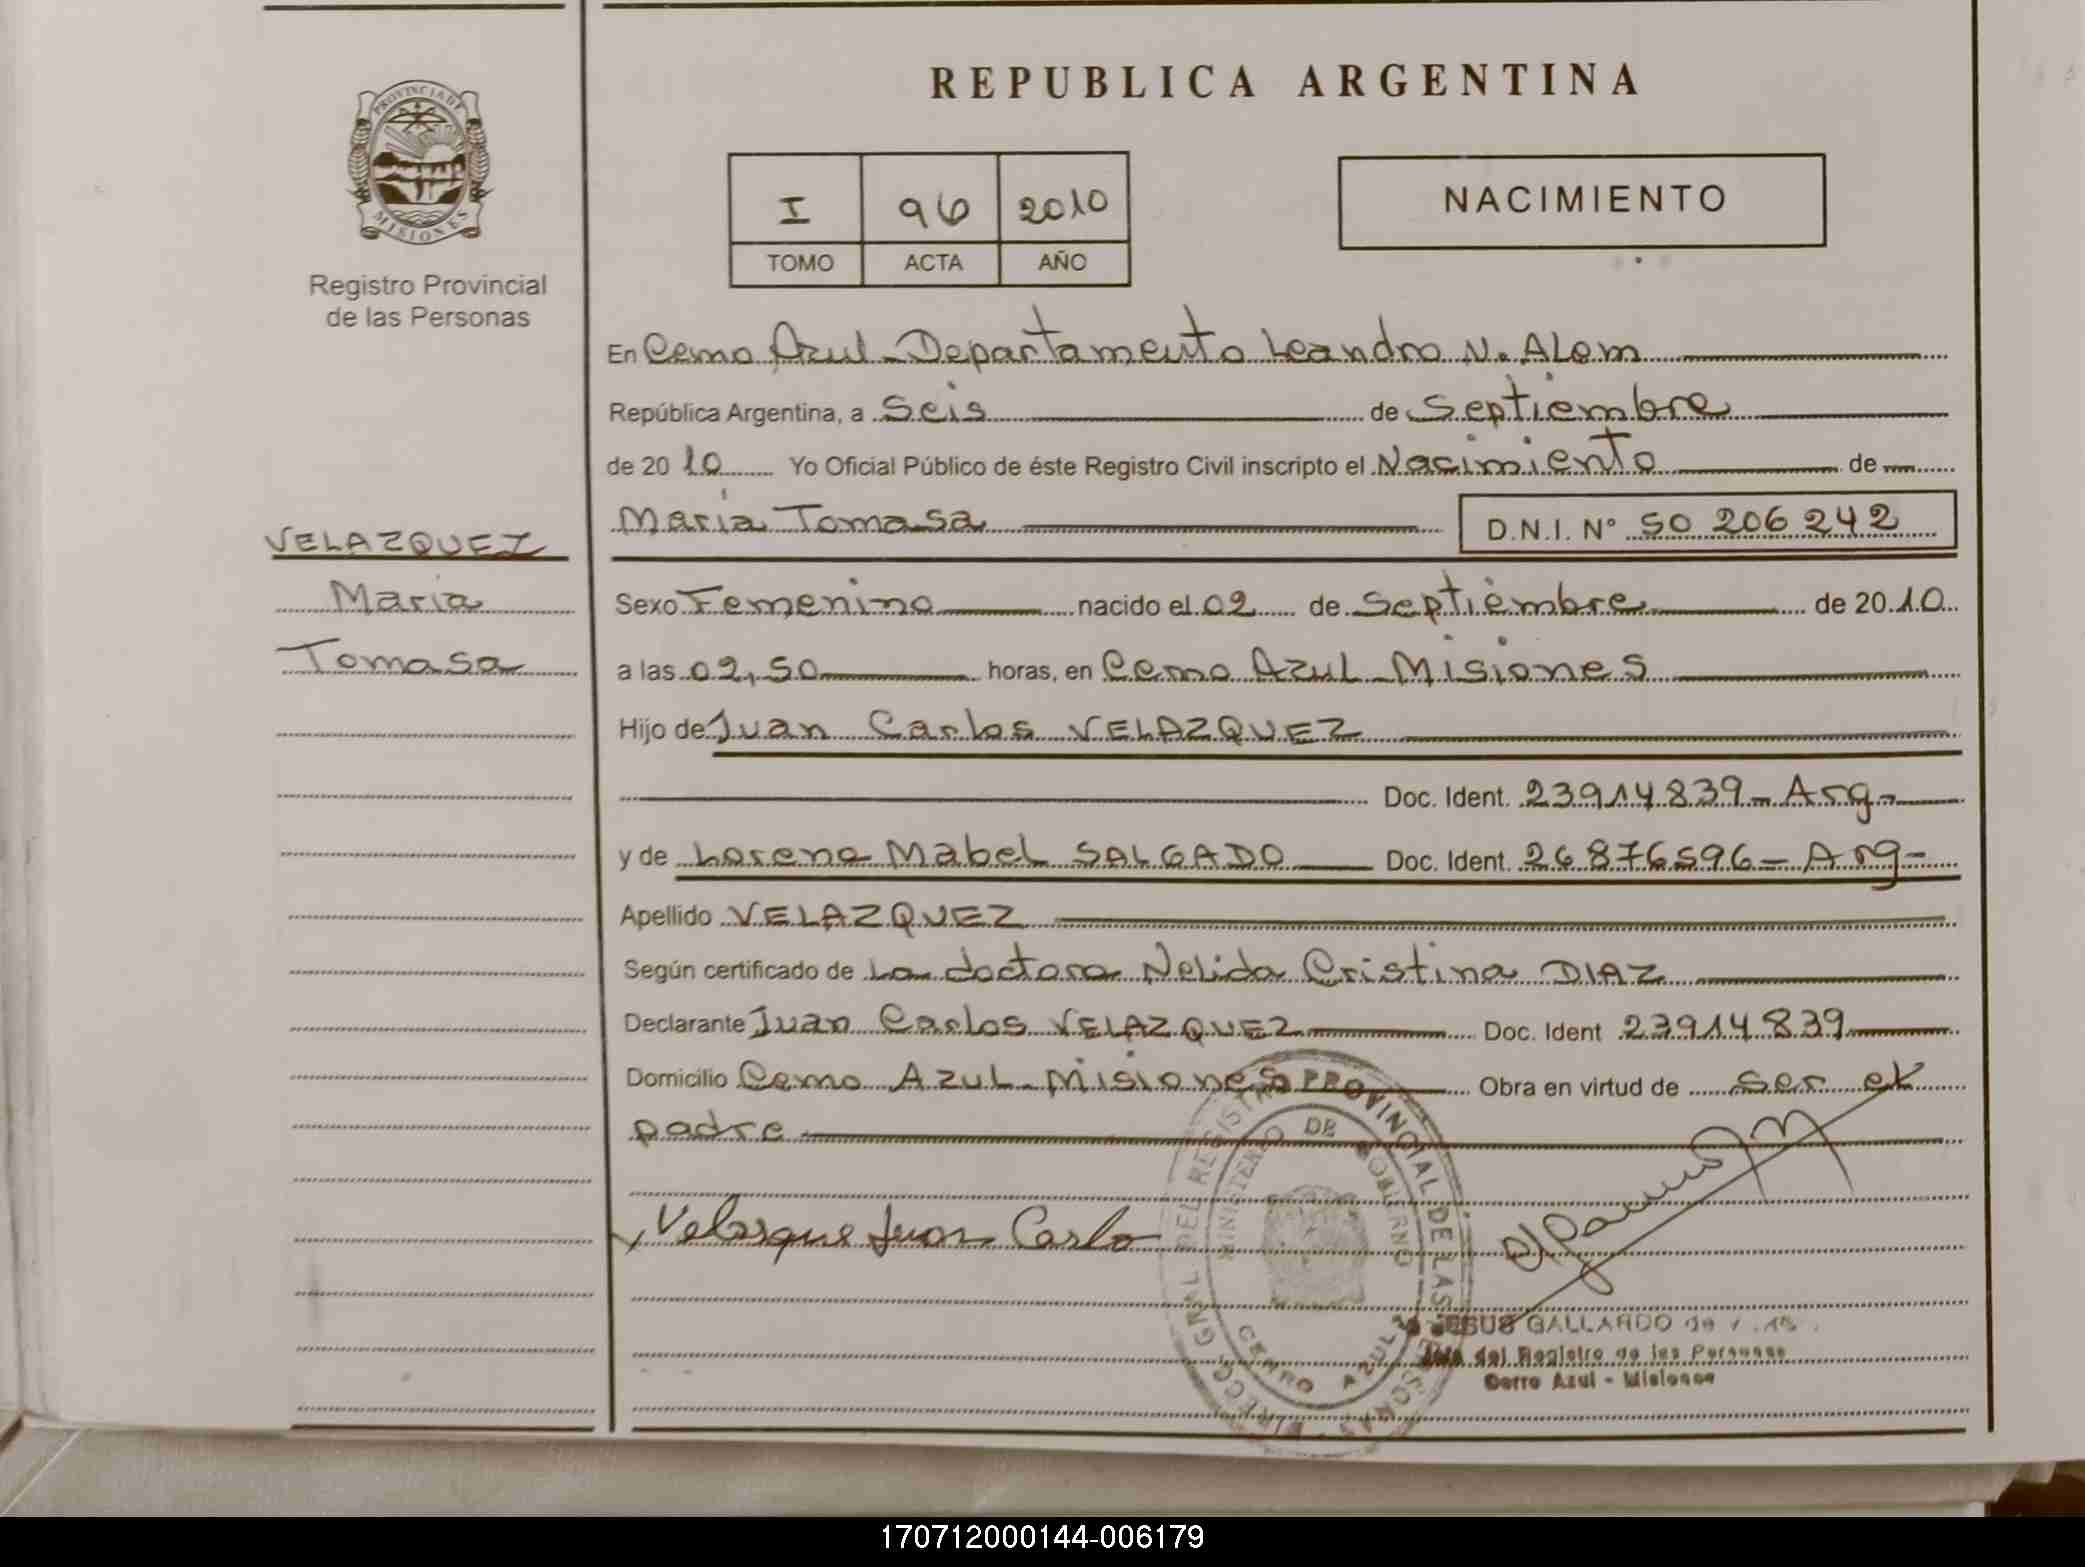 REPUBLICA ARGENTINA
PROVINCIA DE
MISIONES
Registro Provincial
de las Personas
I 96 2010
TOMO ACTA AÑO
NACIMIENTO
En Cerro Azul - Departamento Leandro N. ALem
República Argentina, a Seis de Septiembre
de 2010 Yo Oficial Público de éste Registro Civil inscripto el Nacimiento de
María Tomasa D.N.I. Nº 50 206 242
VELAZQUEZ
María
Tomasa
Sexo Femenino nacido el 02 de Septiembre de 2010
a las 02,50 horas, en Cerro Azul - Misiones
Hijo de Juan Carlos VELAZQUEZ
Doc. Ident. 23914839 - Arg -
y de Lorena Mabel SALGADO Doc. Ident. 26876596 - Arg -
Apellido VELAZQUEZ
Según certificado de La doctora Nelida Cristina DIAZ
Declarante Juan Carlos VELAZQUEZ Doc. Ident 23914839
Domicilio Cerro AZUL - Misiones Obra en virtud de ser el
padre
Velasque Juan Carlo
DIRECC. GRAL. DEL REGISTRO PROVINCIAL DE LAS PERSONAS
MINISTERIO DE GOBIERNO
CERRO AZUL
JESUS GALLARDO de
Jefe del Registro de las Personas
Cerro Azul - Misiones
170712000144-006179